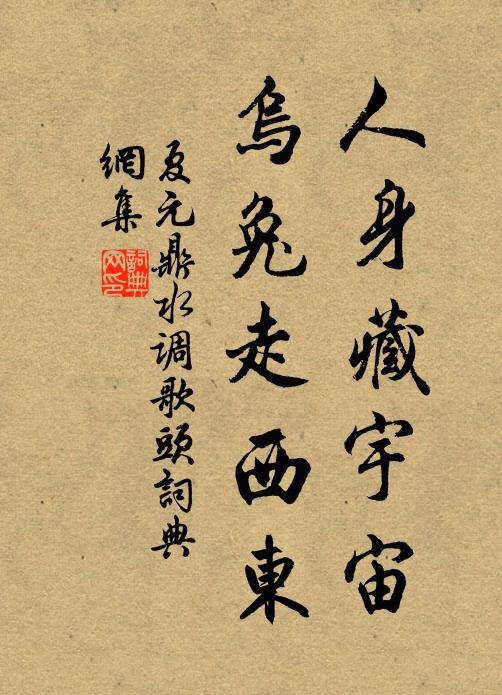 人身藏宇宙
烏兔走西東
夏元鼎水调歌頭詞典
網集
詞典
网印